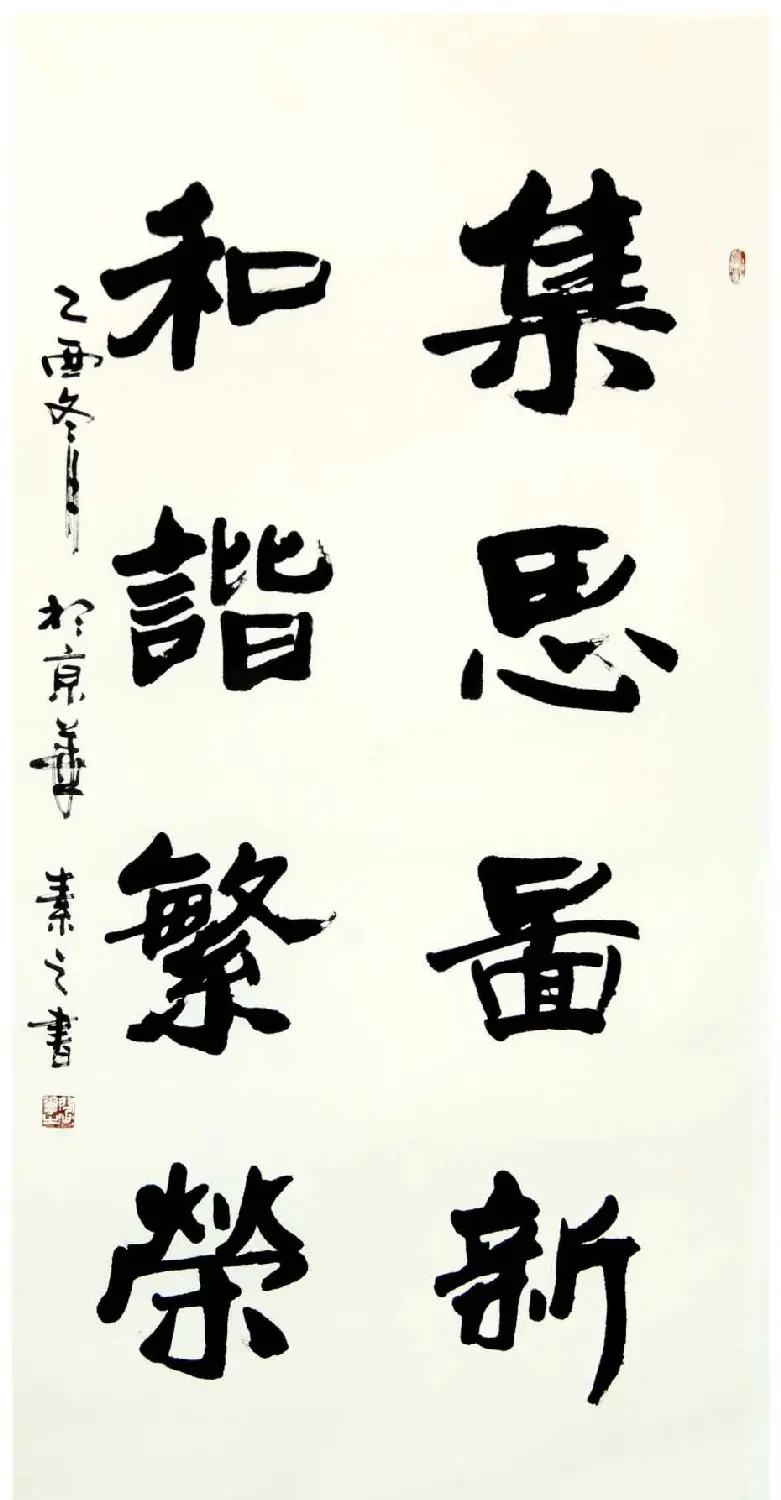 集思啚新
和諧繁榮
乙酉冬月於京華素之書